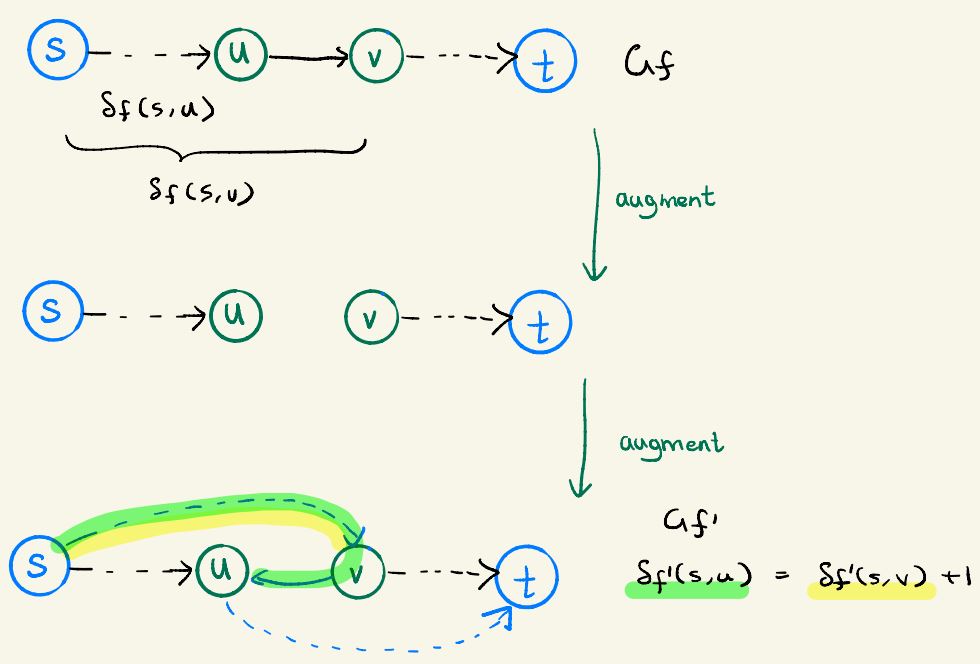 s u v t Gf
δf(s,u)
δf(s,v)
augment
s u v t
augment
Gf'
s u v t
δf'(s,u) = δf'(s,v) +1